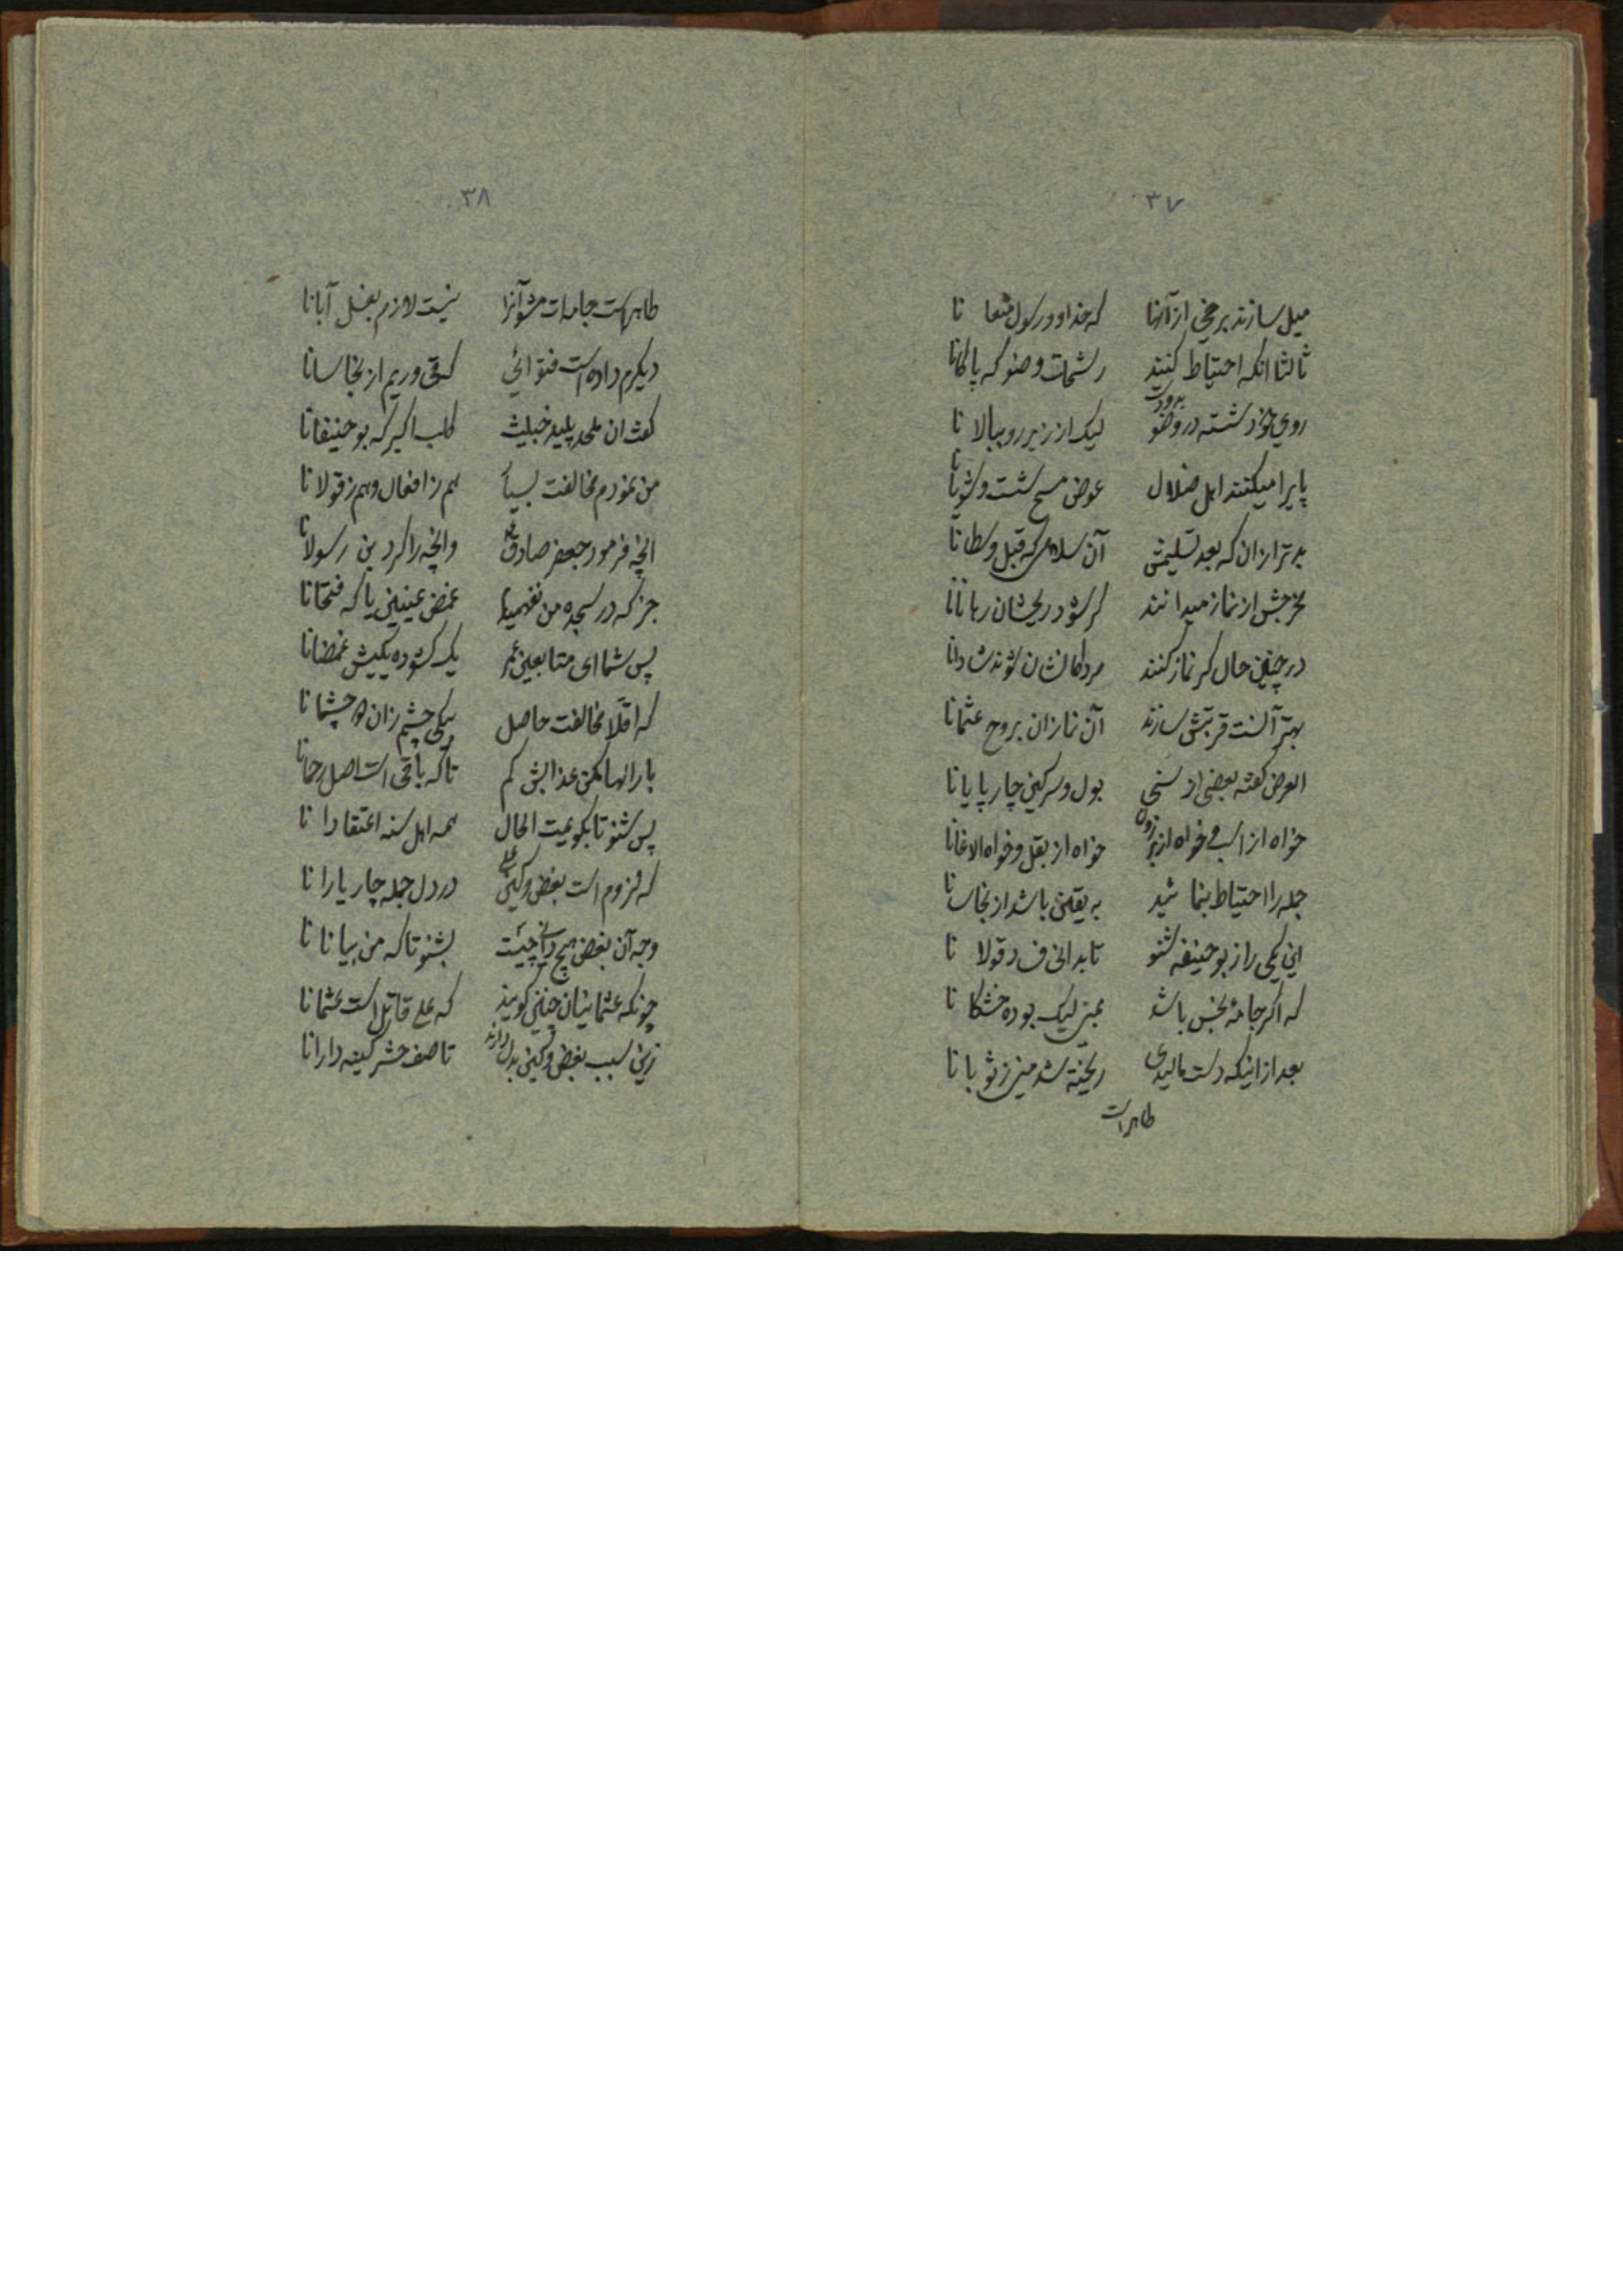 ۳۷
میل سازند برخی از آنها که خدا و رسول منعا نا
ثالثا انکه احتیاط کنند رشحات وضو که پاکانا
روی خود شسته در وضو بدو دست لیک از زیر رو ببالا نا
پایرا میکنند اهل ضلال عوض مسح شست و شویانا
بدتر از ان که بعد تسلیمش آن سلامی که قبل وسطانا
مخرجش از نماز میدانند کر شود ریحشان رهانانا
در چنین حال کر نماز کنند مردکانشان شوند شادانا
بهتر آنست قربتش سازند آن نمازان بروح عثمانا
الغرض کفته بعضی از سنی بول و سرکین چارپایانا
خواه از اسب و خواه از خواه از بغل و خواه الاغانا
جمله را احتیاط بنما شید به یقین باشد از نجاسانا
این یکی را ز بوحنیفه شنو تا بدانی فساد قولا نا
که اکر جامهٔ نجس باشد بمنی لیک بوده خشکا نا
بعد از اینکه دست مالیدی ریخته شد منی ز ثوبا نا
طاهر است
۳۸
طاهر است جامه‌ات مشو آنرا نیست لازم بغسل آبانا
دیکرم داده است فتوائی که قی و ریم از نجاسانا
کفت ان ملحد پلید خبیث کلب اکبر که بوحنیفانا
من نمودم مخالفت بسیار هم ز افعال و هم ز قولانا
انچه فرمود جعفر صادق وانچه را کرد بن رسولانا
جز که در سجده من نفهمیدم غمض عینین یا که فتحانا
پس شما ای متابعین عمر یک کشوده یکیش غمضانا
که اقلا مخالفت حاصل یکی چشم زان دو چشمانا
بارالها مکن عذابش کم تا که باقی است اصل رحمانا
پس شنو تا بکویمت الحال همه اهل سنه اعتقادا نا
که لزوم است بغض و کین علی در دل جمله چار یارا نا
وجه آن بغض هیچ دانی چیست بشنو تا که من بیانا نا
چونکه عثمانیان چنین کویند که علی قاتل است عثمانا
زین سبب بغض و کین بدل دارند تا صف حشر کینه دارانا